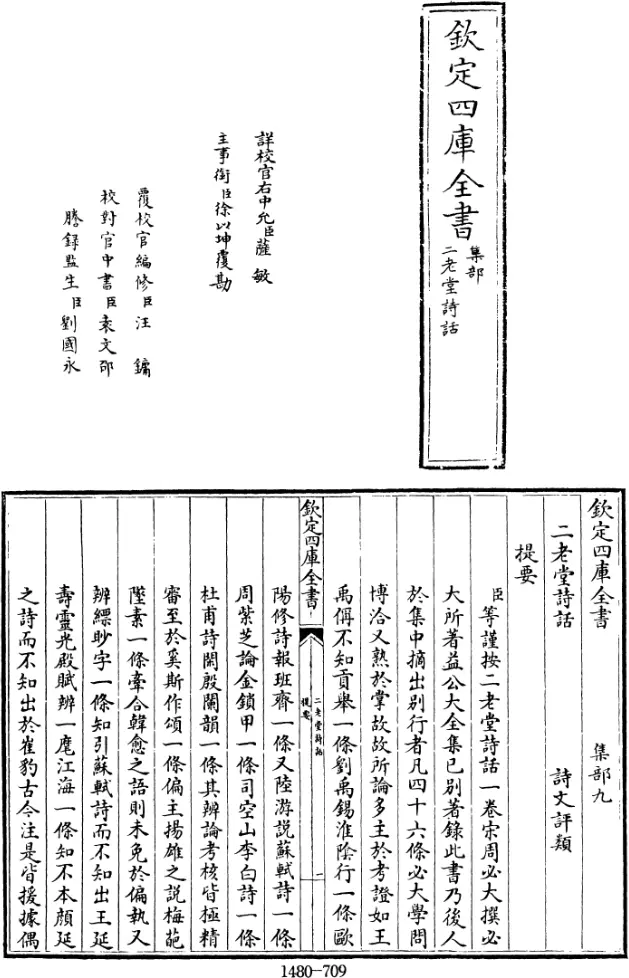 欽定四庫全書
集部
二老堂詩話
詳校官右中允臣薩敏
主事銜臣徐以坤覆勘
覆校官編修臣汪鏞
校對官中書臣袁文邵
謄錄監生臣劉國永
欽定四庫全書 集部九
二老堂詩話 詩文評類
提要
臣等謹按二老堂詩話一卷宋周必大撰必
大所著益公大全集已別著錄此書乃後人
於集中摘出別行者凡四十六條必大學問
博洽又熟於掌故故所論多主於考證如王
禹偁不知貢舉一條劉禹錫淮陰行一條歐
欽定四庫全書
二老堂詩話
提要
一
陽修詩報班齊一條又陸游說蘇軾詩一條
周紫芝論金鎖甲一條司空山李白詩一條
杜甫詩閒殷闌韻一條其辨論考核皆極精
審至於奚斯作頌一條偏主揚雄之說梅葩
墜素一條牽合韓愈之語則未免於偏執又
辨縹眇字一條知引蘇軾詩而不知出王延
壽靈光殿賦辨一麾江海一條知不本顏延
之詩而不知出於崔豹古今注是皆援據偶
1480-709